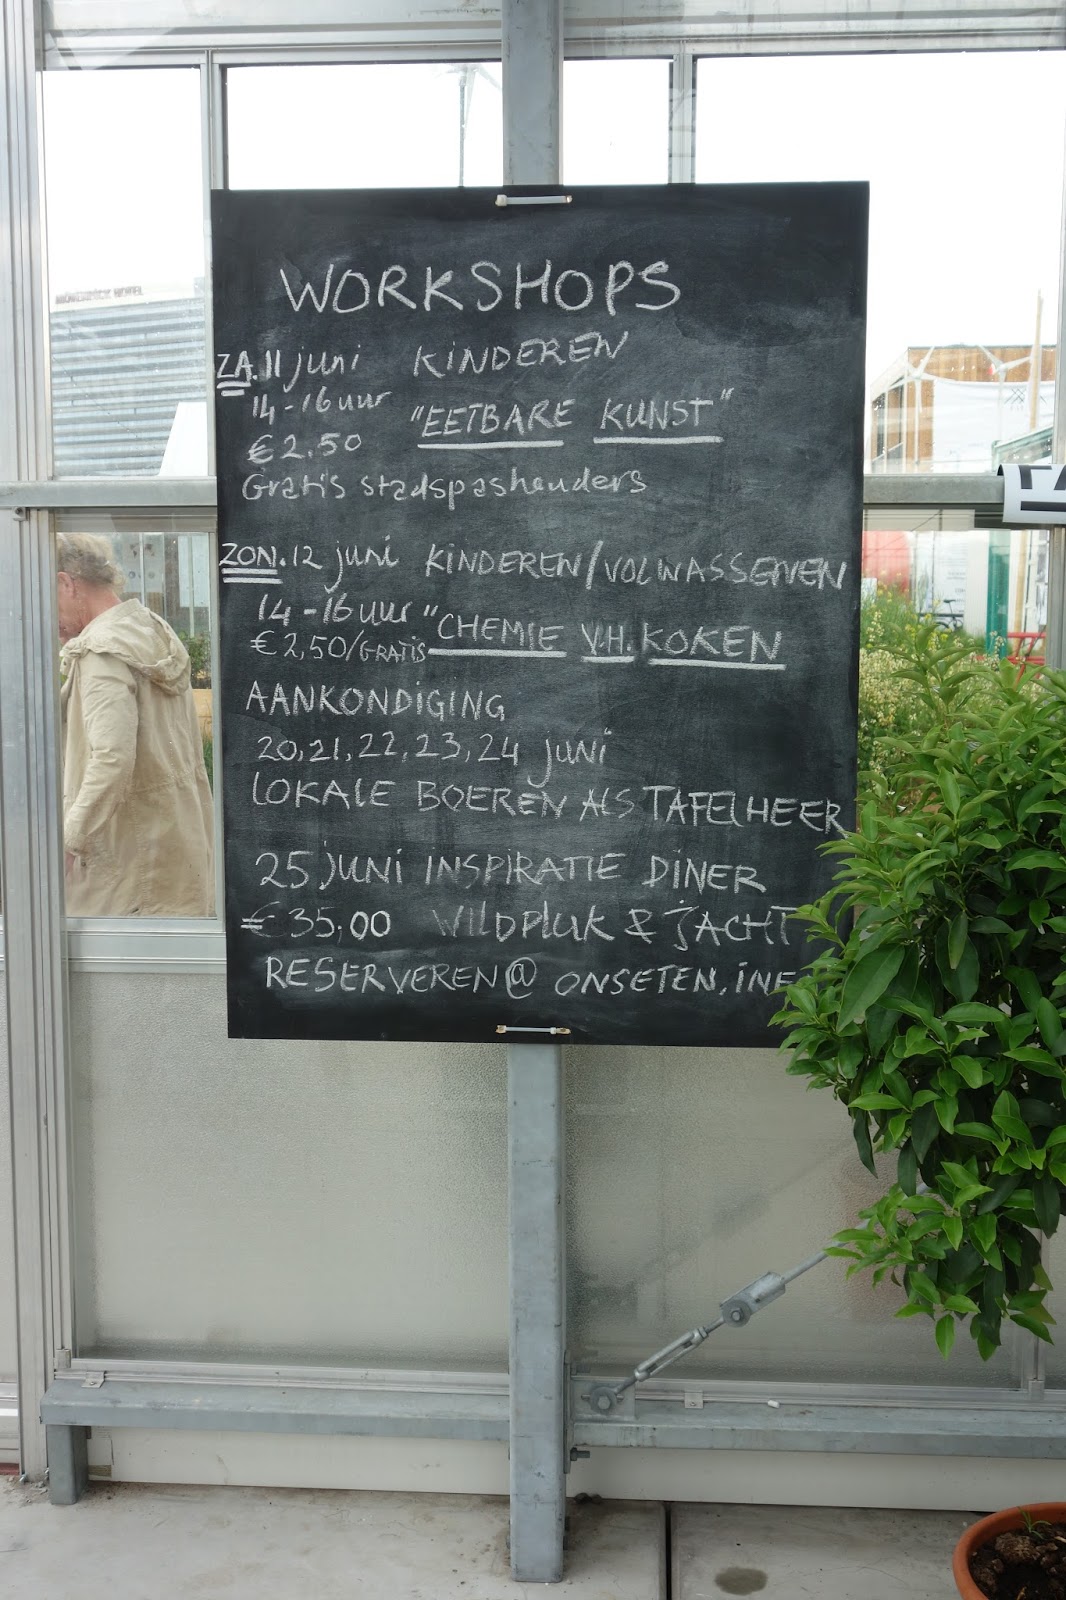 MÖVENPICK HOTEL
WORKSHOPS
ZA. 11 juni KINDEREN
14-16 uur "EETBARE KUNST"
€ 2.50
Gratis stadspashouders
ZON. 12 juni KINDEREN/VOLWASSENEN
14-16 uur "CHEMIE V.H. KOKEN
€ 2,50/GRATIS
AANKONDIGING
20, 21, 22, 23, 24 juni
LOKALE BOEREN ALS TAFELHEER
25 JUNI INSPIRATIE DINER
€ 35,00 WILDPLUK & JACHT
RESERVEREN@ ONSETEN.INF